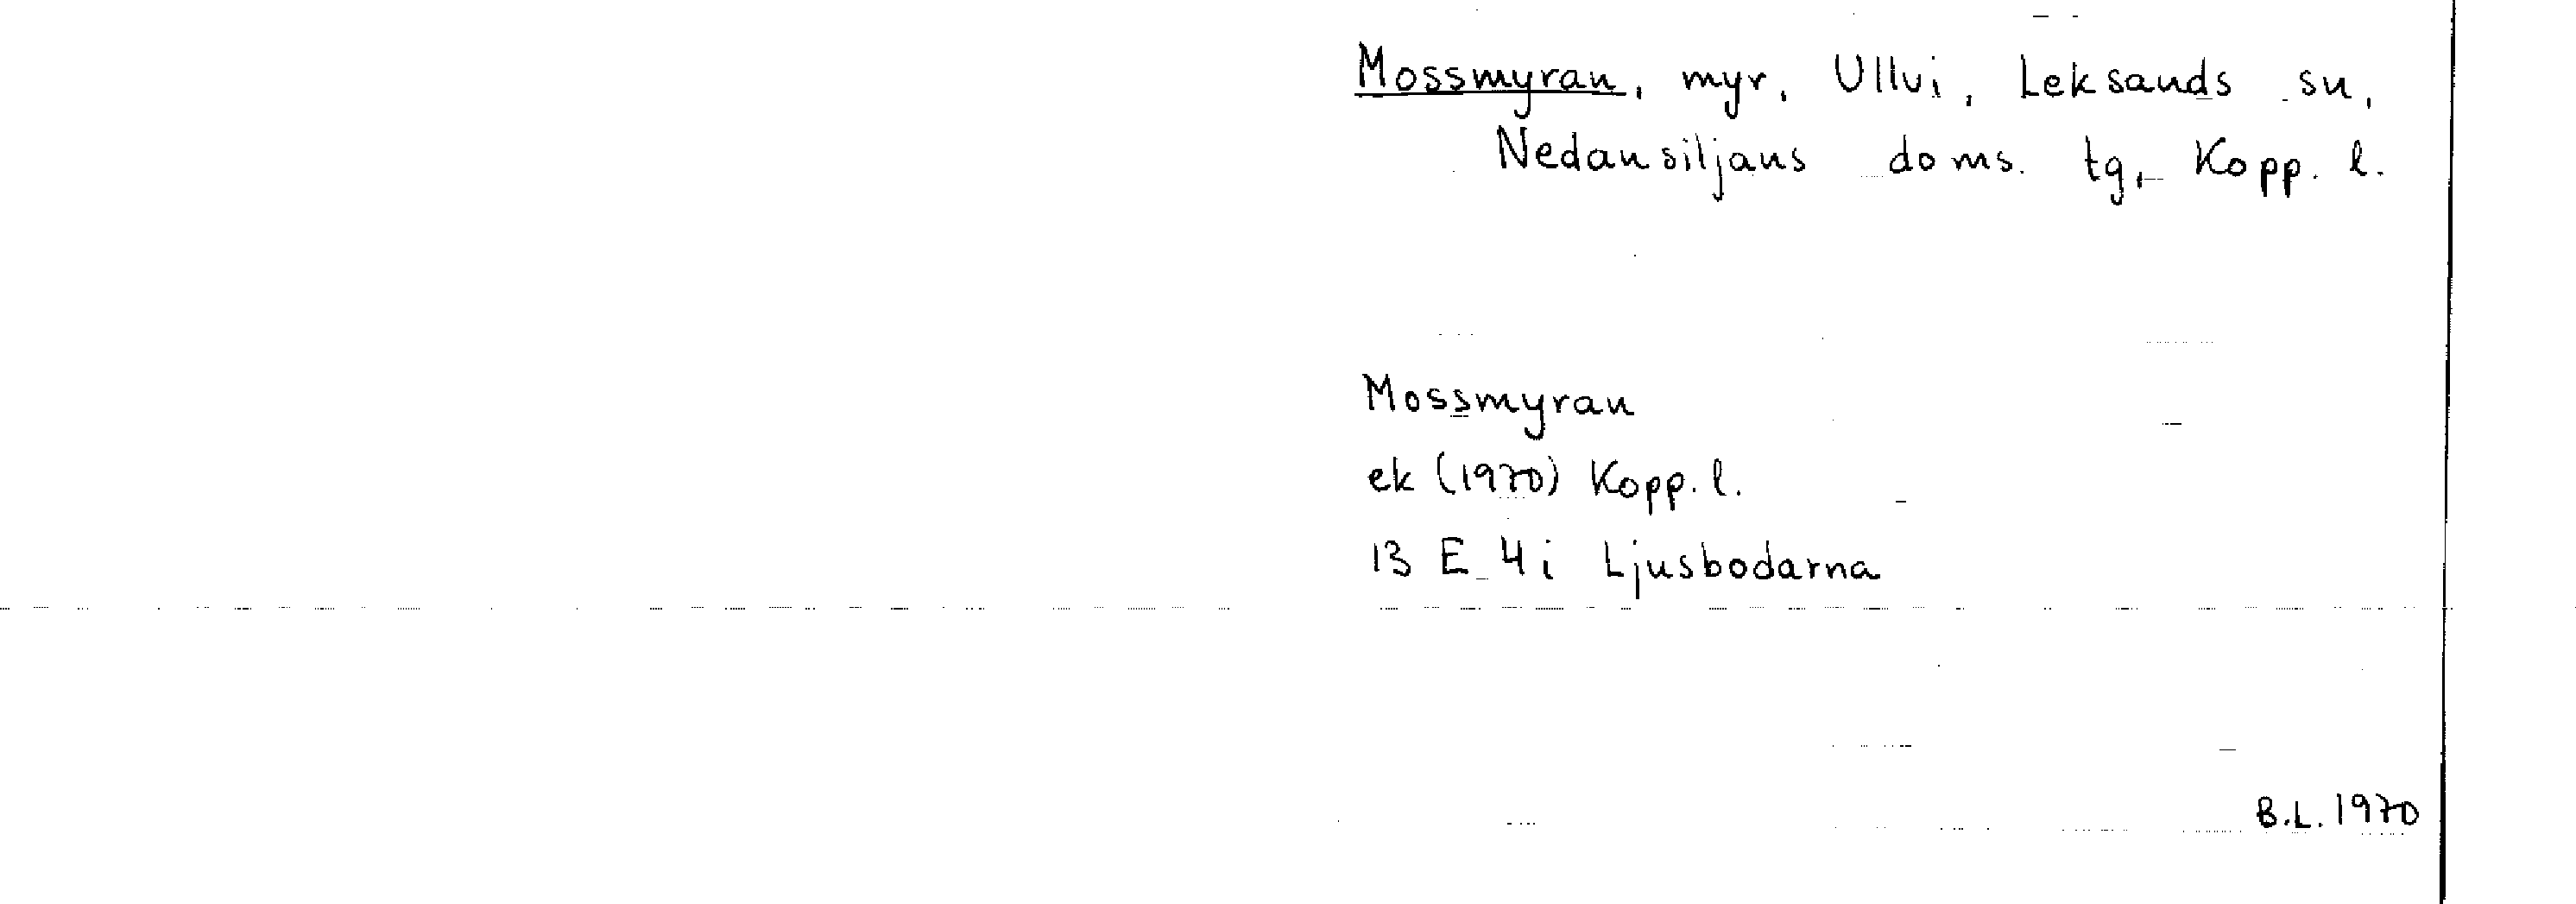 Mossmyran, myr, Ullvi, Leksands sn,
Nedansiljans doms. tg, Kopp. l.
Mossmyran
ek (1970) Kopp. l.
13 E 4 i Ljusbodarna
B.L. 1970